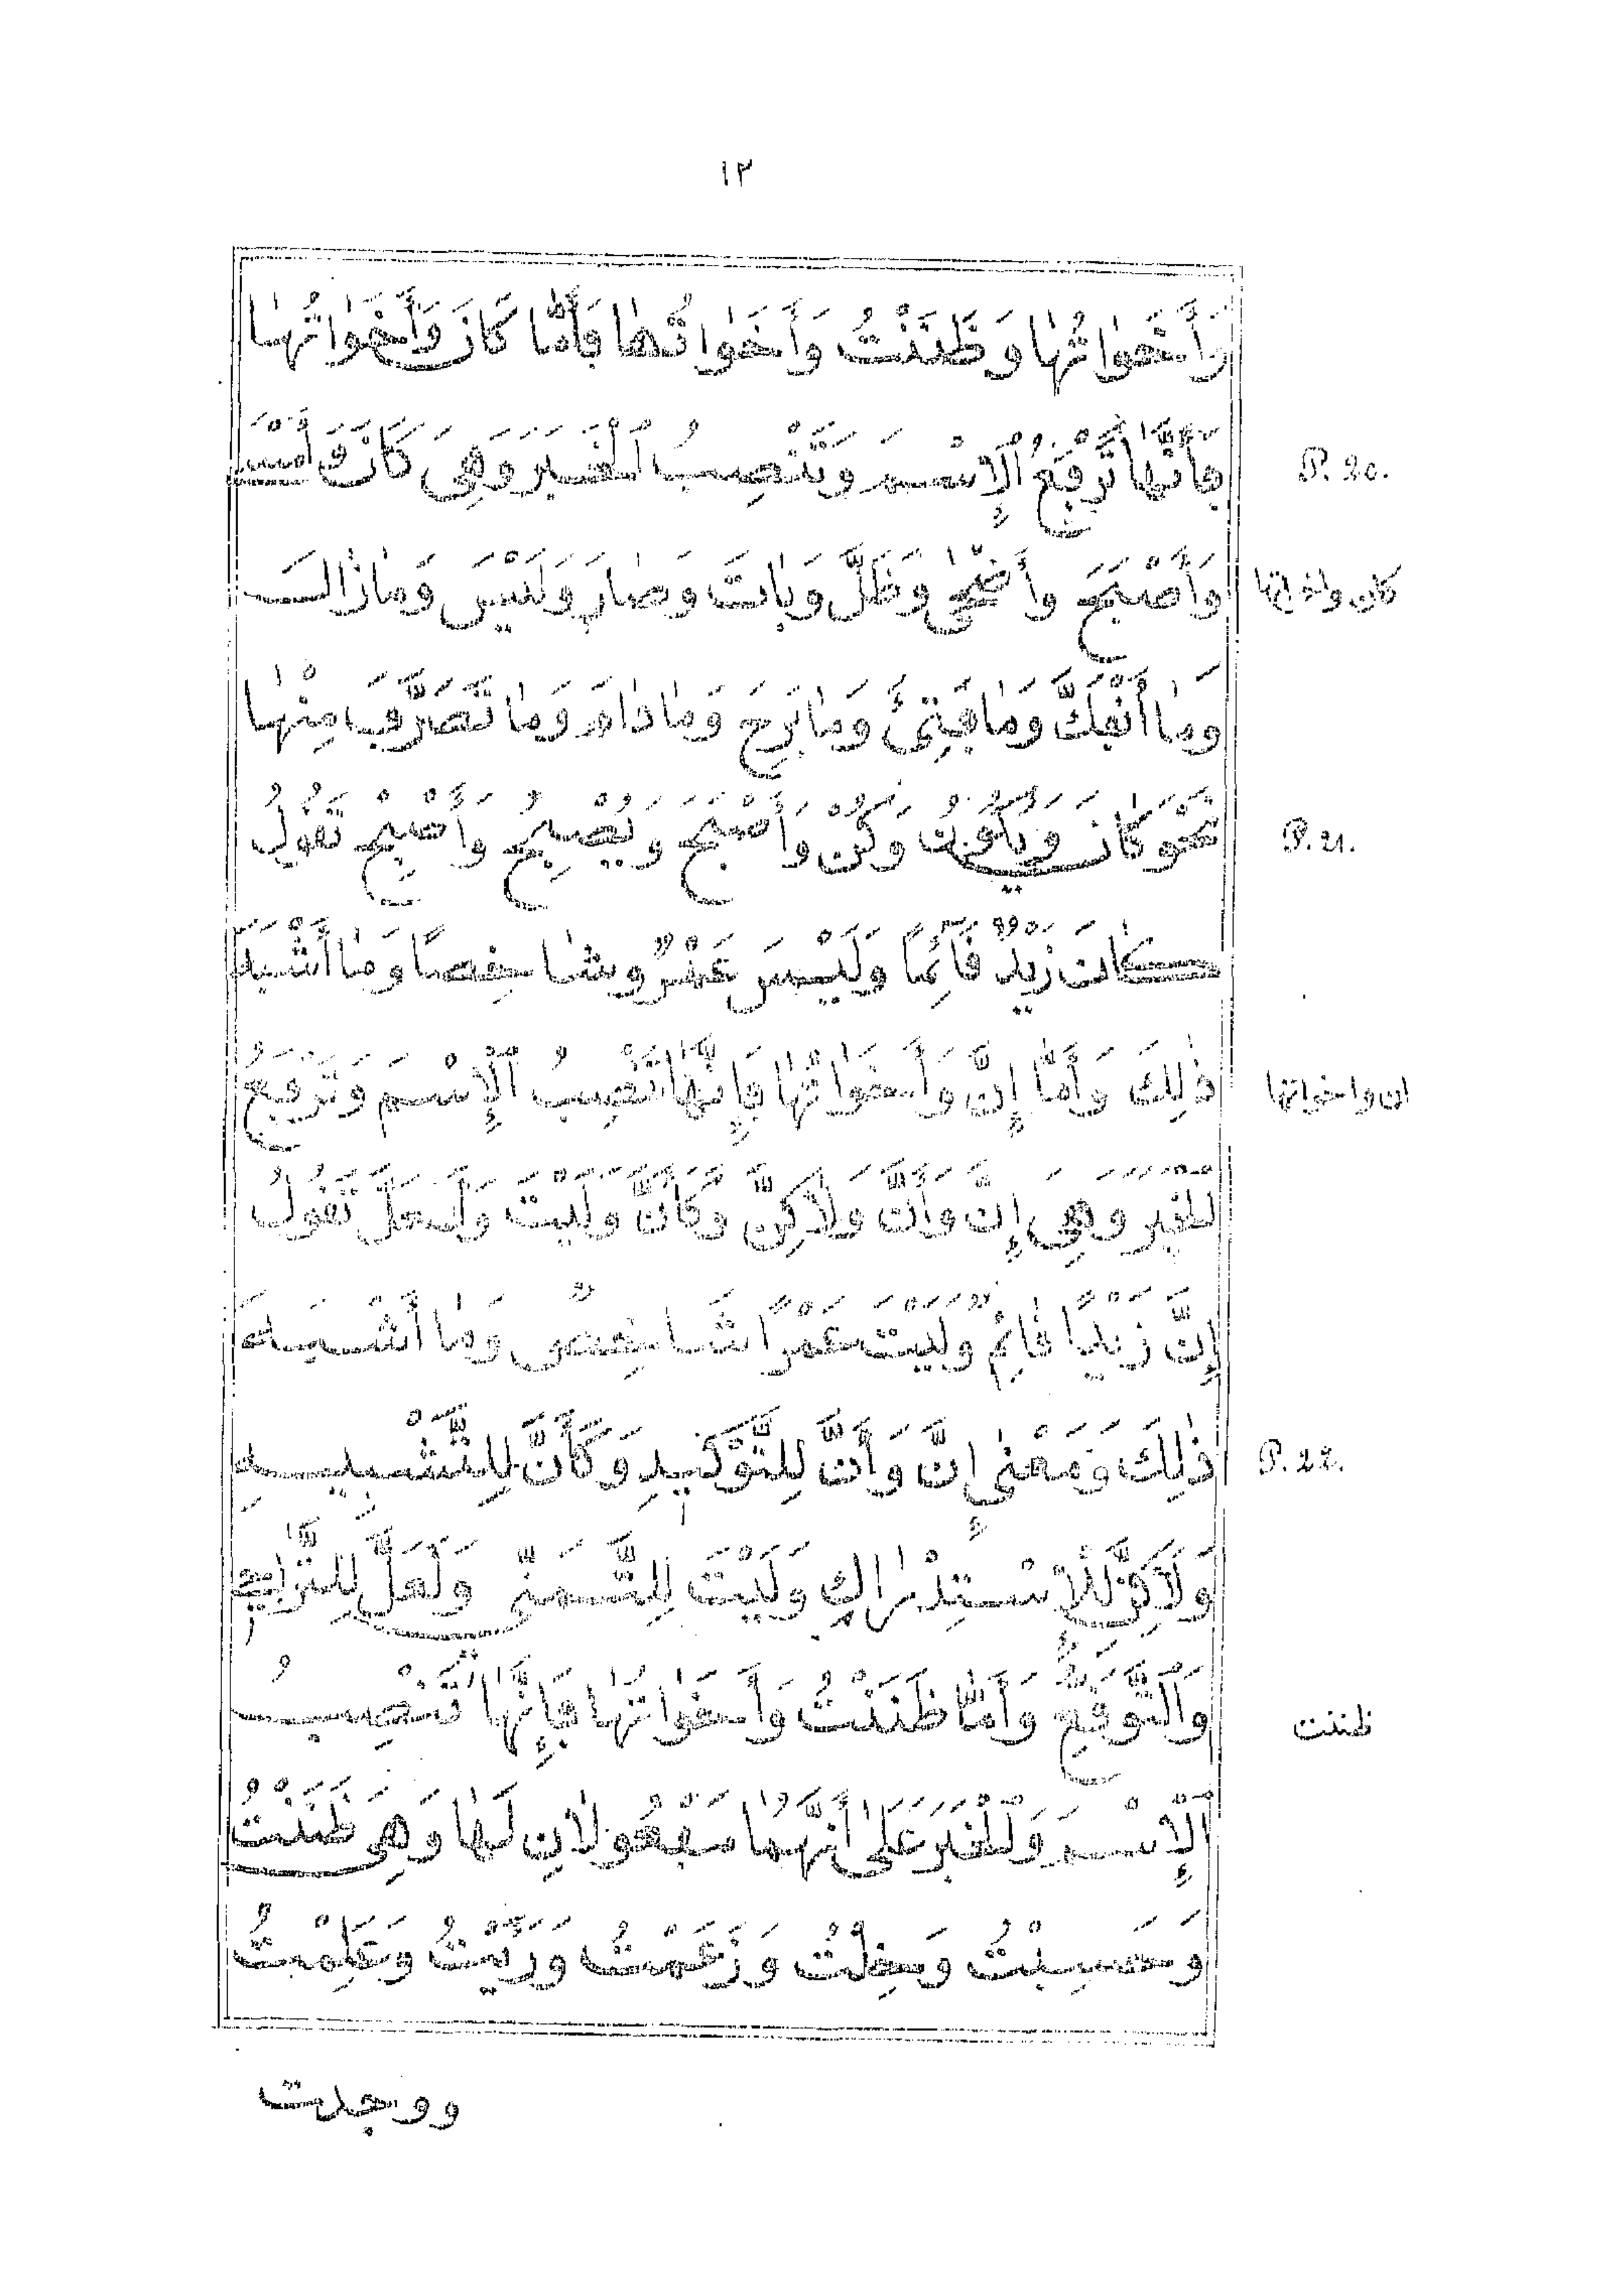 ١٣
وَأَخَوَاتُهَا وَظَنَنْتُ وَأَخَوَاتُهَا فَأَمَّا كَانَ وَأَخَوَاتُهَا
فَإِنَّهَا تَرْفَعُ ٱلْإِسْمَ وَتَنْصِبُ ٱلْخَبَرَ وَهِيَ كَانَ وَأَمْسَى
P. 20.
وَأَصْبَحَ وأَضْحَى وَظَلَّ وَبَاتَ وَصَارَ وَلَيْسَ وَمَا زَالَ
كان واخواتها
وَمَا أَنْفَكَّ وَمَا فَتِئَ وَمَا بَرِحَ وَمَا دَامَ وَمَا تَصَرَّفَ مِنْهَا
نَحْوَ كَانَ وَيَكُونُ وَكُنْ وَأَصْبَحَ وَيُصْبِحُ وَأَصْبِحْ تَقُولُ
P. 21.
كَانَ زَيْدٌ قَآئِمًا وَلَيْسَ عَمْرٌو شَاخِصًا وَمَا أَشْبَهَ
ذٰلِكَ وَأَمَّا إِنَّ وَأَخَوَاتُهَا فَإِنَّهَا تَنْصِبُ ٱلْإِسْمَ وَتَرْفَعُ
ان واخواتها
ٱلْخَبَرَ وَهِيَ إِنَّ وَأَنَّ وَلَاكِنَّ وَكَأَنَّ وَلَيْتَ وَلَعَلَّ تَقُولُ
إِنَّ زَيْدًا قَائِمٌ وَلَيْتَ عَمْرًا شَاخِصٌ وَمَا أَشْبَهَ
ذٰلِكَ وَمَعْنَى إِنَّ وَأَنَّ لِلتَّوْكِيدِ وَكَأَنَّ لِلتَّشْبِيهِ
P. 22.
وَلَاكِنَّ لِلْإِسْتِدْرَاكِ وَلَيْتَ لِلتَّمَنِّي وَلَعَلَّ لِلتَّرَجِّي
وَٱلتَّوَقُّعِ وَأَمَّا ظَنَنْتُ وَأَخَوَاتُهَا فَإِنَّهَا تَنْصِبُ
ظننت
ٱلْإِسْمَ وَٱلْخَبَرَ عَلَى أَنَّهُمَا مَفْعُولَانِ لَهَا وَهِيَ ظَنَنْتُ
وَحَسِبْتُ وَخِلْتُ وَزَعَمْتُ وَرَأَيْتُ وَعَلِمْتُ
ووجدت